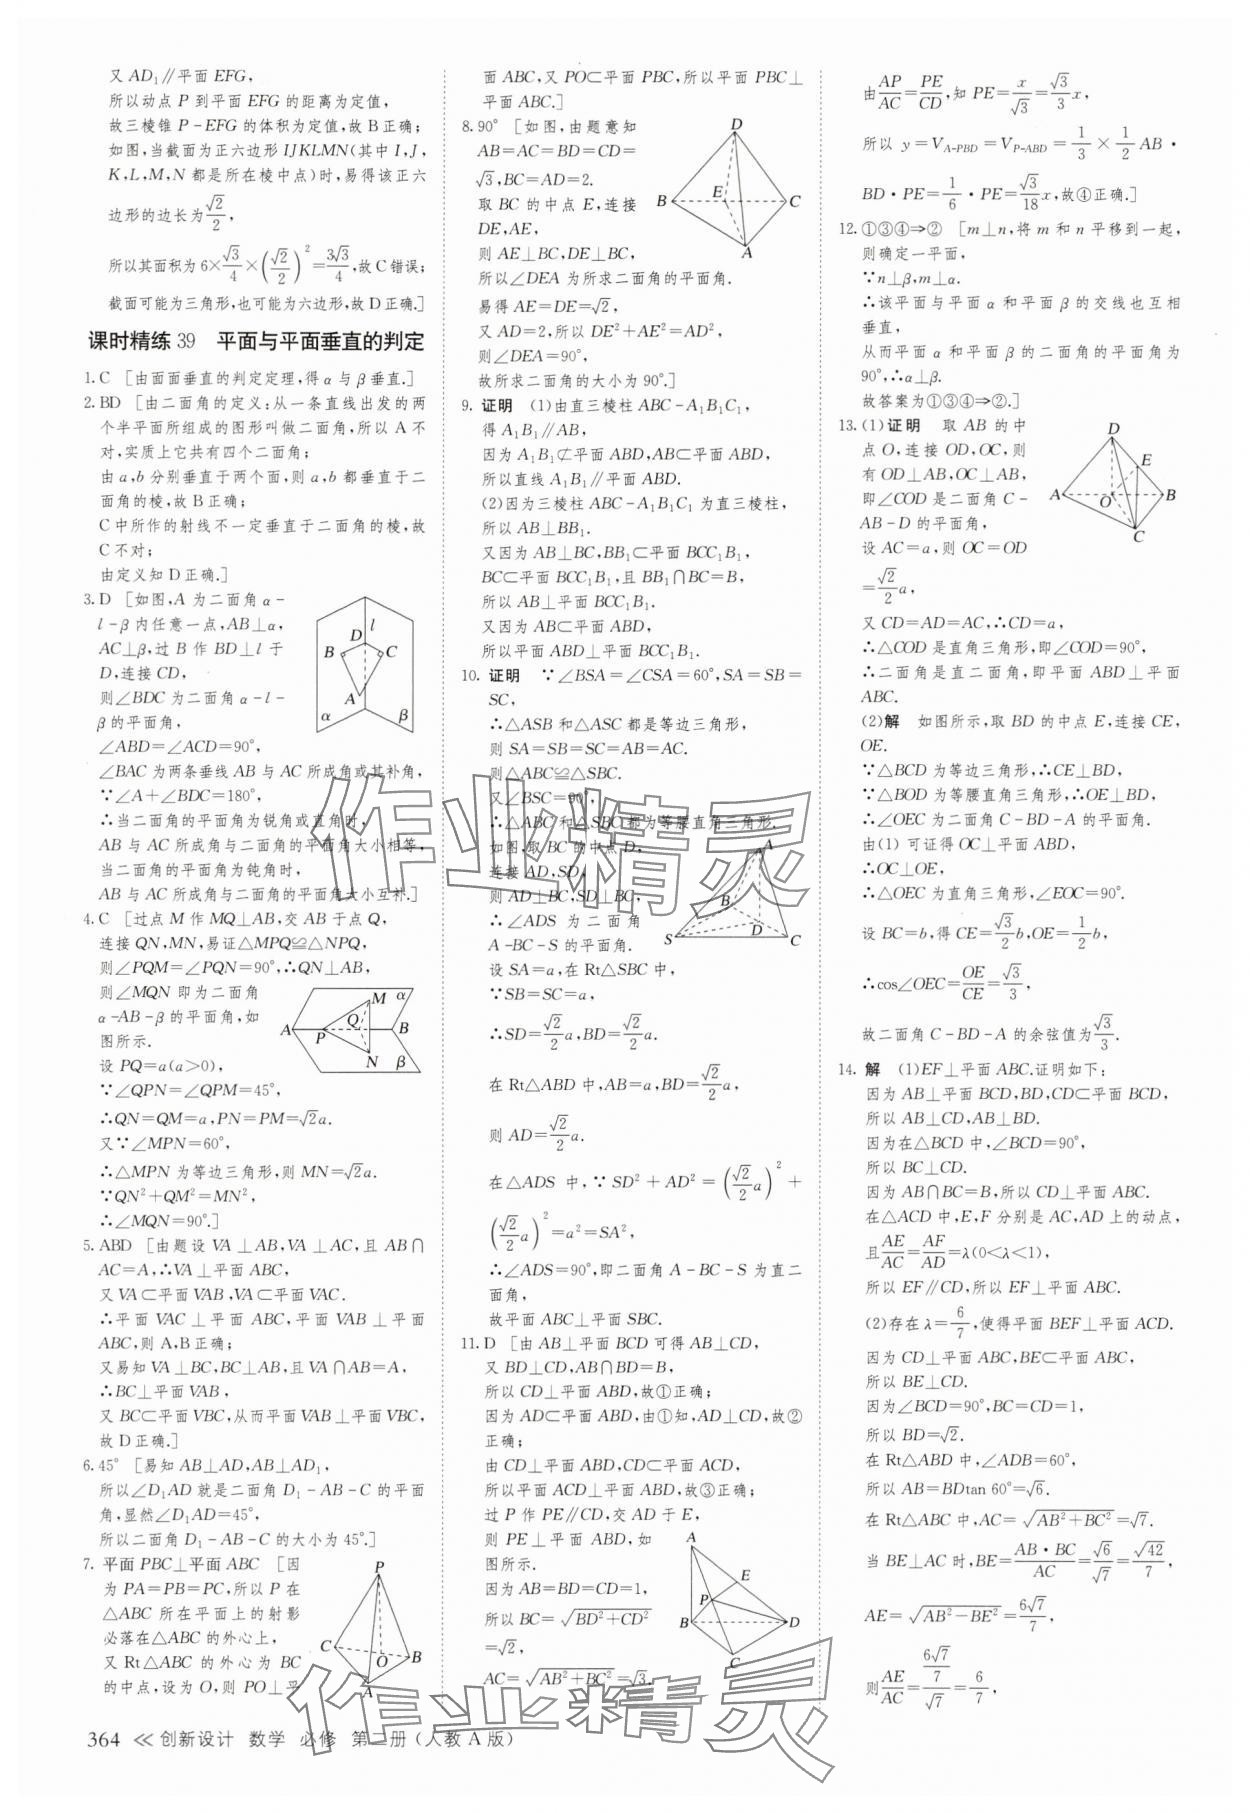 又 AD₁∥平面 EFG,
所以动点 P 到平面 EFG 的距离为定值,
故三棱锥 P-EFG 的体积为定值,故 B 正确;
如图,当截面为正六边形 IJKLMN(其中 I,J,
K,L,M,N 都是所在棱中点)时,易得该正六
边形的边长为√2/2,
所以其面积为 6×√3/4×(√2/2)²=3√3/4,故 C 错误;
截面可能为三角形,也可能为六边形,故 D 正确.]
课时精练 39 平面与平面垂直的判定
1.C [由面面垂直的判定定理,得 α 与 β 垂直.]
2.BD [由二面角的定义:从一条直线出发的两
个半平面所组成的图形叫做二面角,所以 A 不
对,实质上它共有四个二面角;
由 a,b 分别垂直于两个面,则 a,b 都垂直于二
面角的棱,故 B 正确;
C 中所作的射线不一定垂直于二面角的棱,故
C 不对;
由定义知 D 正确.]
3.D [如图,A 为二面角 α-
l-β 内任意一点,AB⊥α,
AC⊥β,过 B 作 BD⊥l 于
D,连接 CD,
则∠BDC 为二面角 α-l-
β 的平面角,
∠ABD=∠ACD=90°,
∠BAC 为两条垂线 AB 与 AC 所成角或其补角,
∵∠A+∠BDC=180°,
∴当二面角的平面角为锐角或直角时,
AB 与 AC 所成角与二面角的平面角大小相等,
当二面角的平面角为钝角时,
AB 与 AC 所成角与二面角的平面角大小互补.]
l
D
B
C
A
α
β
4.C [过点 M 作 MQ⊥AB,交 AB 于点 Q,
连接 QN,MN,易证△MPQ≌△NPQ,
则∠PQM=∠PQN=90°,∴QN⊥AB,
则∠MQN 即为二面角
α-AB-β 的平面角,如
图所示.
设 PQ=a(a>0),
∵∠QPN=∠QPM=45°,
∴QN=QM=a,PN=PM=√2a.
又∵∠MPN=60°,
∴△MPN 为等边三角形,则 MN=√2a.
∵QN²+QM²=MN²,
∴∠MQN=90°.]
M
α
Q
A
P
B
N
β
5.ABD [由题设 VA⊥AB,VA⊥AC,且 AB∩
AC=A,∴VA⊥平面 ABC,
又 VA⊂平面 VAB,VA⊂平面 VAC.
∴平面 VAC⊥平面 ABC,平面 VAB⊥平面
ABC,则 A,B 正确;
又易知 VA⊥BC,BC⊥AB,且 VA∩AB=A,
∴BC⊥平面 VAB,
又 BC⊂平面 VBC,从而平面 VAB⊥平面 VBC,
故 D 正确.]
6.45° [易知 AB⊥AD,AB⊥AD₁,
所以∠D₁AD 就是二面角 D₁-AB-C 的平面
角,显然∠D₁AD=45°,
所以二面角 D₁-AB-C 的大小为 45°.]
7.平面 PBC⊥平面 ABC [因
为 PA=PB=PC,所以 P 在
△ABC 所在平面上的射影
必落在△ABC 的外心上,
又 Rt△ABC 的外心为 BC
的中点,设为 O,则 PO⊥平
P
C
O
B
A
面 ABC,又 PO⊂平面 PBC,所以平面 PBC⊥
平面 ABC.]
8.90° [如图,由题意知
AB=AC=BD=CD=
√3,BC=AD=2.
取 BC 的中点 E,连接
DE,AE,
则 AE⊥BC,DE⊥BC,
所以∠DEA 为所求二面角的平面角.
易得 AE=DE=√2,
又 AD=2,所以 DE²+AE²=AD²,
则∠DEA=90°,
故所求二面角的大小为 90°.]
D
E
B
C
A
9.证明 (1)由直三棱柱 ABC-A₁B₁C₁,
得 A₁B₁∥AB,
因为 A₁B₁⊄平面 ABD,AB⊂平面 ABD,
所以直线 A₁B₁∥平面 ABD.
(2)因为三棱柱 ABC-A₁B₁C₁ 为直三棱柱,
所以 AB⊥BB₁.
又因为 AB⊥BC,BB₁⊂平面 BCC₁B₁,
BC⊂平面 BCC₁B₁,且 BB₁∩BC=B,
所以 AB⊥平面 BCC₁B₁.
又因为 AB⊂平面 ABD,
所以平面 ABD⊥平面 BCC₁B₁.
10.证明 ∵∠BSA=∠CSA=60°,SA=SB=
SC,
∴△ASB 和△ASC 都是等边三角形,
则 SA=SB=SC=AB=AC.
则△ABC≌△SBC.
又∠BSC=90°,
∴△ABC 和△SBC 都为等腰直角三角形.
如图,取 BC 的中点 D,
连接 AD,SD,
则 AD⊥BC,SD⊥BC,
∴∠ADS 为二面角
A-BC-S 的平面角.
设 SA=a,在 Rt△SBC 中,
∵SB=SC=a,
∴SD=√2/2a,BD=√2/2a.
在 Rt△ABD 中,AB=a,BD=√2/2a,
则 AD=√2/2a.
在△ADS 中,∵SD²+AD²=(√2/2a)²+
(√2/2a)²=a²=SA²,
∴∠ADS=90°,即二面角 A-BC-S 为直二
面角,
故平面 ABC⊥平面 SBC.
A
B
D
S
C
11.D [由 AB⊥平面 BCD 可得 AB⊥CD,
又 BD⊥CD,AB∩BD=B,
所以 CD⊥平面 ABD,故①正确;
因为 AD⊂平面 ABD,由①知,AD⊥CD,故②
正确;
由 CD⊥平面 ABD,CD⊂平面 ACD,
所以平面 ACD⊥平面 ABD,故③正确;
过 P 作 PE∥CD,交 AD 于 E,
则 PE⊥平面 ABD,如
图所示.
因为 AB=BD=CD=1,
所以 BC=√(BD²+CD²)
=√2,
AC=√(AB²+BC²)=√3.
A
E
P
B
D
C
由AP/AC=PE/CD,知 PE=x/√3=√3/3x,
所以 y=V_{A-PBD}=V_{P-ABD}=1/3×1/2AB·
BD·PE=1/6·PE=√3/18x,故④正确.]
12.①③④⇒② [m⊥n,将 m 和 n 平移到一起,
则确定一平面,
∵n⊥β,m⊥α.
∴该平面与平面 α 和平面 β 的交线也互相
垂直,
从而平面 α 和平面 β 的二面角的平面角为
90°,∴α⊥β.
故答案为①③④⇒②.]
13.(1)证明 取 AB 的中
点 O,连接 OD,OC,则
有 OD⊥AB,OC⊥AB,
即∠COD 是二面角 C-
AB-D 的平面角,
设 AC=a,则 OC=OD
=√2/2a,
又 CD=AD=AC,∴CD=a,
∴△COD 是直角三角形,即∠COD=90°,
∴二面角是直二面角,即平面 ABD⊥平面
ABC.
(2)解 如图所示,取 BD 的中点 E,连接 CE,
OE.
∵△BCD 为等边三角形,∴CE⊥BD,
∵△BOD 为等腰直角三角形,∴OE⊥BD,
∴∠OEC 为二面角 C-BD-A 的平面角.
由(1)可证得 OC⊥平面 ABD,
∴OC⊥OE,
∴△OEC 为直角三角形,∠EOC=90°.
设 BC=b,得 CE=√3/2b,OE=1/2b,
∴cos∠OEC=OE/CE=√3/3,
故二面角 C-BD-A 的余弦值为√3/3.
D
E
A
O
B
C
14.解 (1)EF⊥平面 ABC.证明如下:
因为 AB⊥平面 BCD,BD,CD⊂平面 BCD,
所以 AB⊥CD,AB⊥BD.
因为在△BCD 中,∠BCD=90°,
所以 BC⊥CD.
因为 AB∩BC=B,所以 CD⊥平面 ABC.
在△ACD 中,E,F 分别是 AC,AD 上的动点,
且AE/AC=AF/AD=λ(0<λ<1),
所以 EF∥CD,所以 EF⊥平面 ABC.
(2)存在 λ=6/7,使得平面 BEF⊥平面 ACD.
因为 CD⊥平面 ABC,BE⊂平面 ABC,
所以 BE⊥CD.
因为∠BCD=90°,BC=CD=1,
所以 BD=√2.
在 Rt△ABD 中,∠ADB=60°,
所以 AB=BDtan 60°=√6.
在 Rt△ABC 中,AC=√(AB²+BC²)=√7.
当 BE⊥AC 时,BE=AB·BC/AC=√6/√7=√42/7,
AE=√(AB²-BE²)=6√7/7,
则AE/AC=(6√7/7)/√7=6/7,
364 ≪创新设计 数学 必修 第二册(人教 A 版)
作业精灵
作业精灵